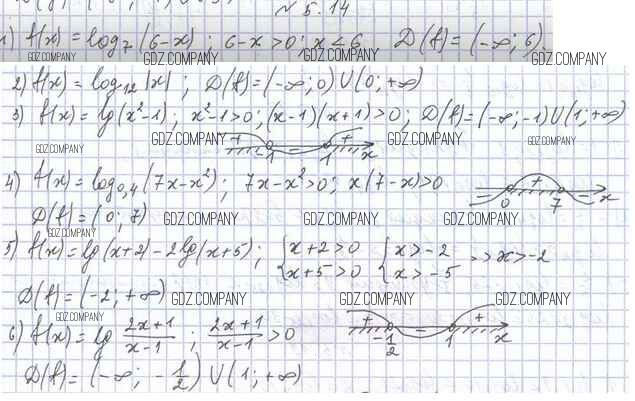 № 5.14
1) f(x) = log₇(6-x) ; 6-x>0 ; x<6 D(f) = (-∞; 6).
GDZ.COMPANY GDZ.COMPANY GDZ.COMPANY GDZ.COMPANY
2) f(x) = log₁₂|x| ; D(f) = (-∞; 0) U (0; +∞)
3) f(x) = lg(x²-1) ; x²-1>0 ; (x-1)(x+1)>0 ; D(f) = (-∞; -1) U (1; +∞)
GDZ.COMPANY + GDZ.COMPANY GDZ.COMPANY GDZ.COMPANY
-1 - 1 x
4) f(x) = log₀,₄(7x-x²) ; 7x-x²>0 ; x(7-x)>0
- 0 + 7 - x
D(f) = (0; 7) GDZ.COMPANY GDZ.COMPANY GDZ.COMPANY
GDZ.COMPANY
5) f(x) = lg(x+2) - 2lg(x+5) ; { x+2>0 x+5>0 { x>-2 x>-5 => x>-2
D(f) = (-2; +∞) GDZ.COMPANY GDZ.COMPANY GDZ.COMPANY
GDZ.COMPANY
6) f(x) = lg (2x+1)/(x-1) ; (2x+1)/(x-1) > 0
+ -1/2 - 1 + x
D(f) = (-∞; -1/2) U (1; +∞)